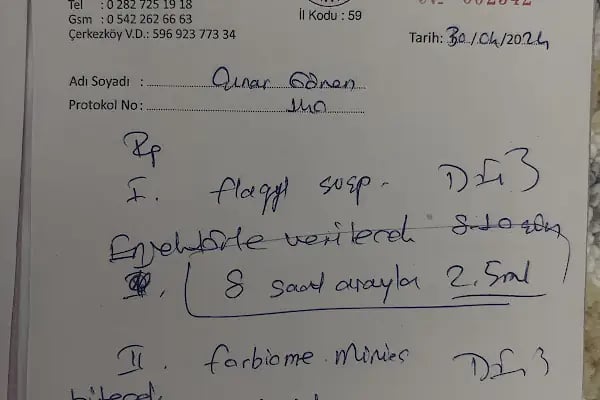 Tel : 0 282 725 19 18
Gsm : 0 542 262 66 63
Çerkezköy V.D.: 596 923 773 34
İl Kodu : 59
Tarih: 30/04/2024
Adı Soyadı :
Protokol No:
Rp
I. flagyl susp. D I 3
Enjektörle verilecek 8-10 gün
8 saat arayla 2.5ml
II. D I 3